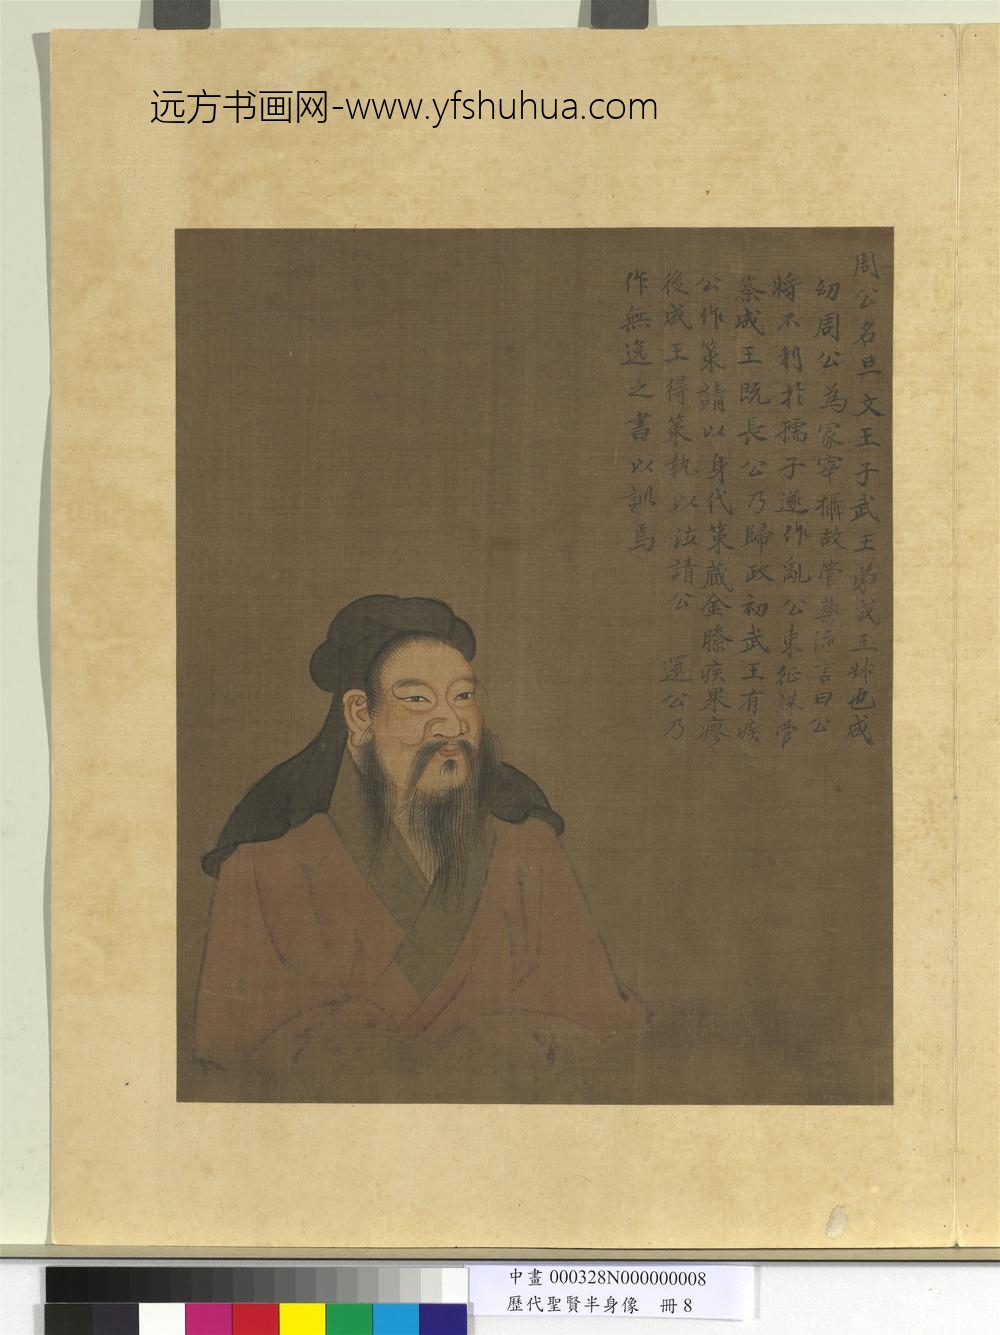 远方书画网-www.yfshuhua.com
周公名旦文王子武王弟成王叔也成
幼周公為冢宰攝故管蔡流言曰公
將不利於孺子遂作亂公東征誅管
蔡成王既長公乃歸政初武王有疾
公作策請以身代策藏金縢疾果瘳
後成王得策執以泣請公還公乃
作無逸之書以訓焉
中畫 000328N000000008
歷代聖賢半身像 冊 8